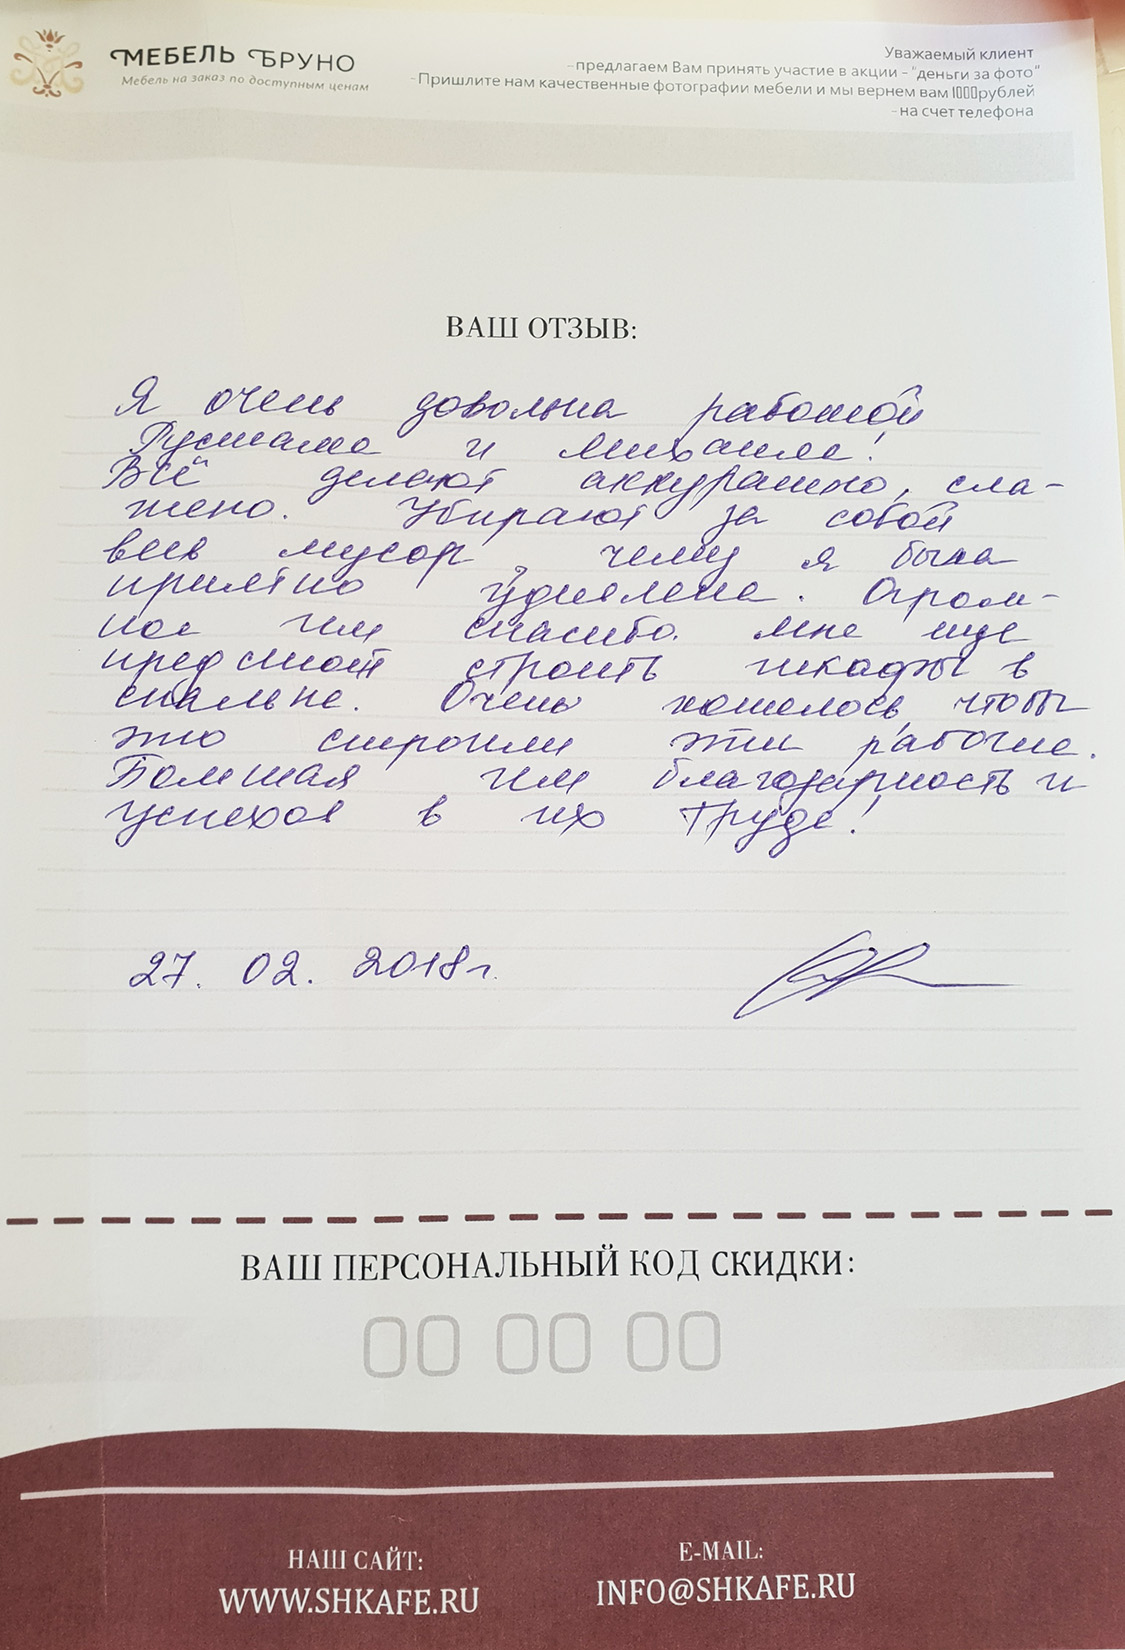 МЕБЕЛЬ БРУНО
Мебель на заказ по доступным ценам
Уважаемый клиент
- предлагаем Вам принять участие в акции - "деньги за фото"
- Пришлите нам качественные фотографии мебели и мы вернем вам 1000рублей
- на счет телефона
ВАШ ОТЗЫВ:
Я очень довольна работой
Рустама и Михаила!
Всё делают аккуратно, сла-
жено. Убирают за собой
весь мусор, чему я была
приятно удивлена. Огром-
ное им спасибо. Мне еще
предстоит строить шкафы в
спальне. Очень хотелось, чтобы
это строили эти рабочие.
Большая им благодарность и
успехов в их труде!
27. 02. 2018г.
ВАШ ПЕРСОНАЛЬНЫЙ КОД СКИДКИ:
00 00 00
НАШ САЙТ:
WWW.SHKAFE.RU
E-MAIL:
INFO@SHKAFE.RU